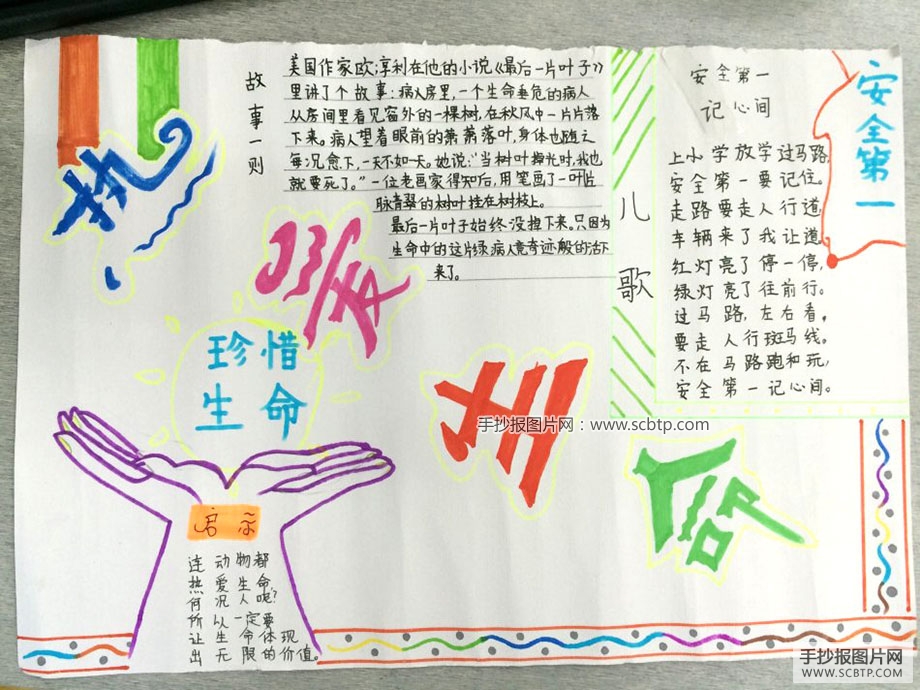 故事一则
美国作家欧;享利在他的小说《最后一片叶子》
里讲了个故事:病人房里,一个生命垂危的病人
从房间里看见窗外的一棵树,在秋风中一片片落
下来。病人望着眼前的萧萧落叶,身体也随之
每况愈下,一天不如一天。她说:"当树叶掉光时,我也
就要死了。"一位老画家得知后,用笔画了一叶片
脉青翠的树叶挂在树枝上。
最后一片叶子始终没掉下来。只因为
生命中的这片绿,病人竟奇迹般的活下
来了。
儿歌
安全第一
记心间
上小学放学过马路,
安全第一要记住。
走路要走人行道,
车辆来了我让道。
红灯亮了停一停,
绿灯亮了往前行。
过马路,左右看,
要走人行斑马线。
不在马路跑和玩,
安全第一记心间。
安全第一
热
爱
生
命
珍惜
生命
启示
连动物都
热爱生命
何况人呢?
所以一定要
让生命体现
出无限的价值。
手抄报图片网:www.scbtp.com
手抄报图片网
WWW.SCBTP.COM